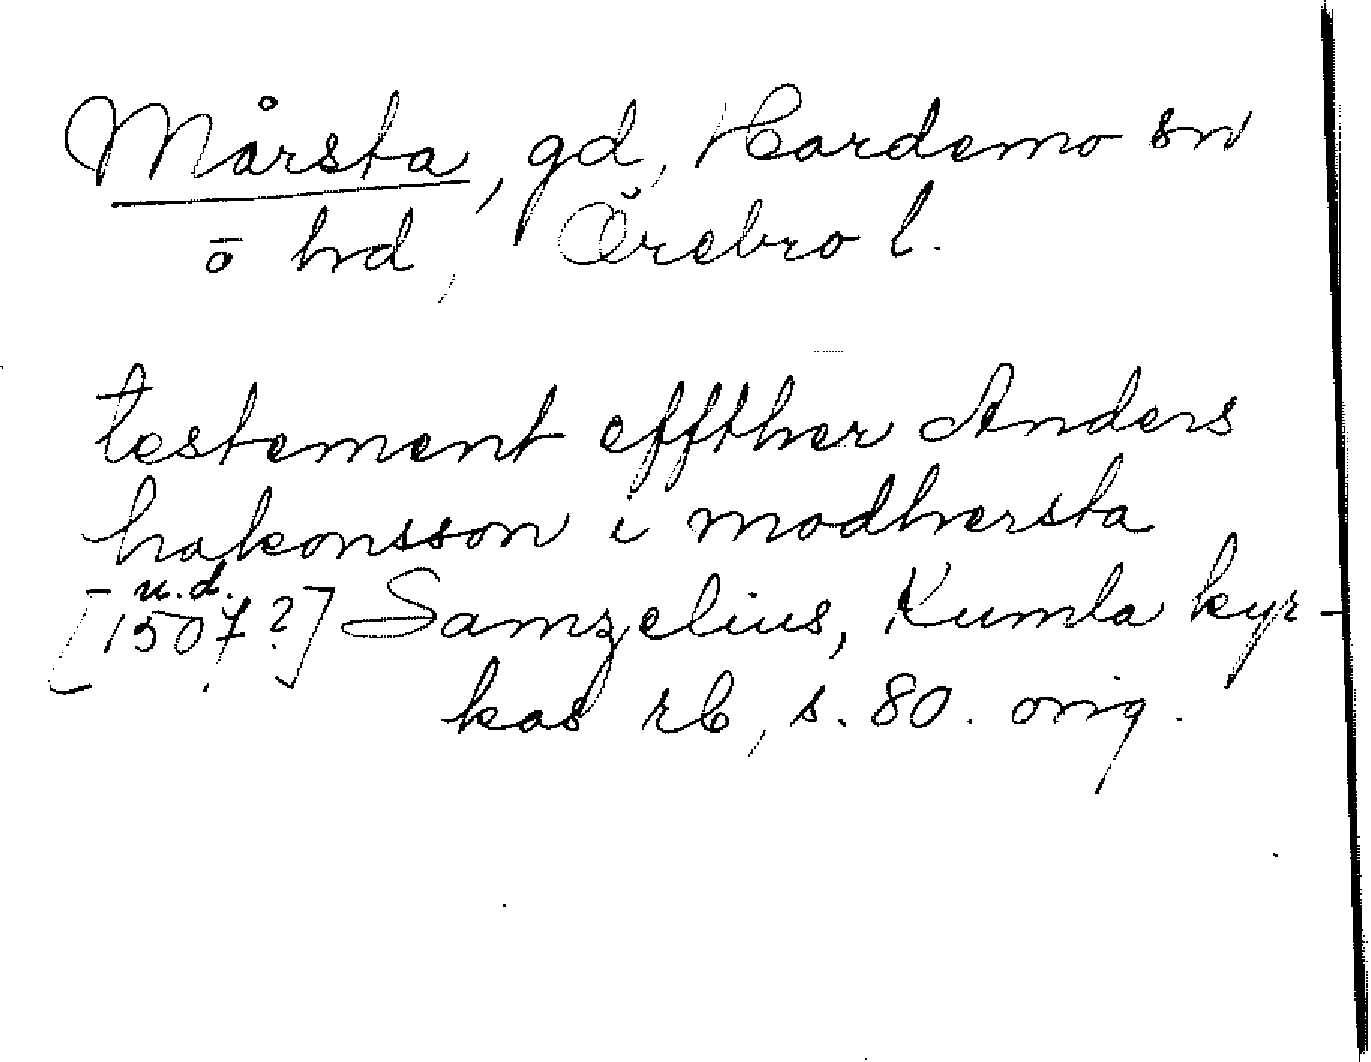 Mårsta, gd, Hardemo sn
o hd, Örebro l.
testement effther Anders
hakonsson i modhersta
[u.d. 1507?] Samzelius, Kumla kyr-
kas rb, s. 80. orig.